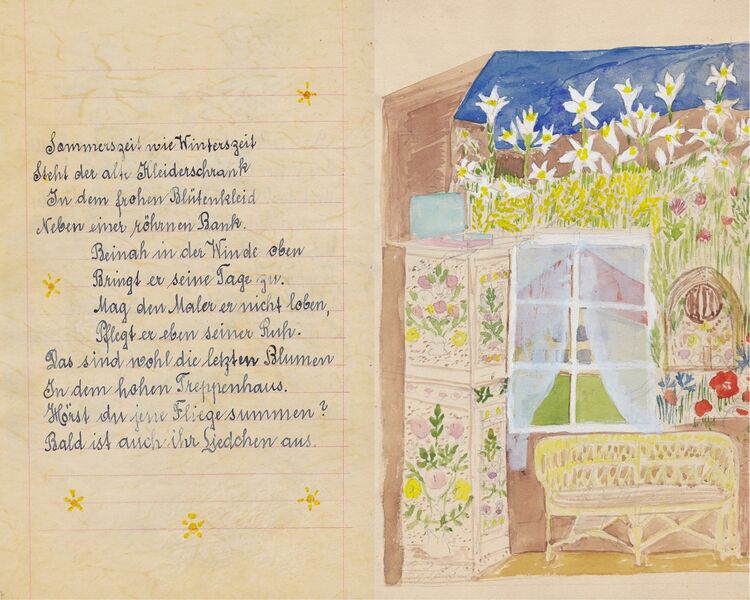 Sommerszeit wie Winterszeit
Steht der alte Kleiderschrank
In dem frohen Blütenkleid
Neben einer röhrnen Bank.
Beinah in der Winde oben
Bringt er seine Tage zu.
Mag den Maler er nicht loben,
Pflegt er eben seiner Ruh.
Das sind wohl die letzten Blumen
In dem hohen Treppenhaus.
Hörst du jene Fliege summen?
Bald ist auch ihr Liedchen aus.